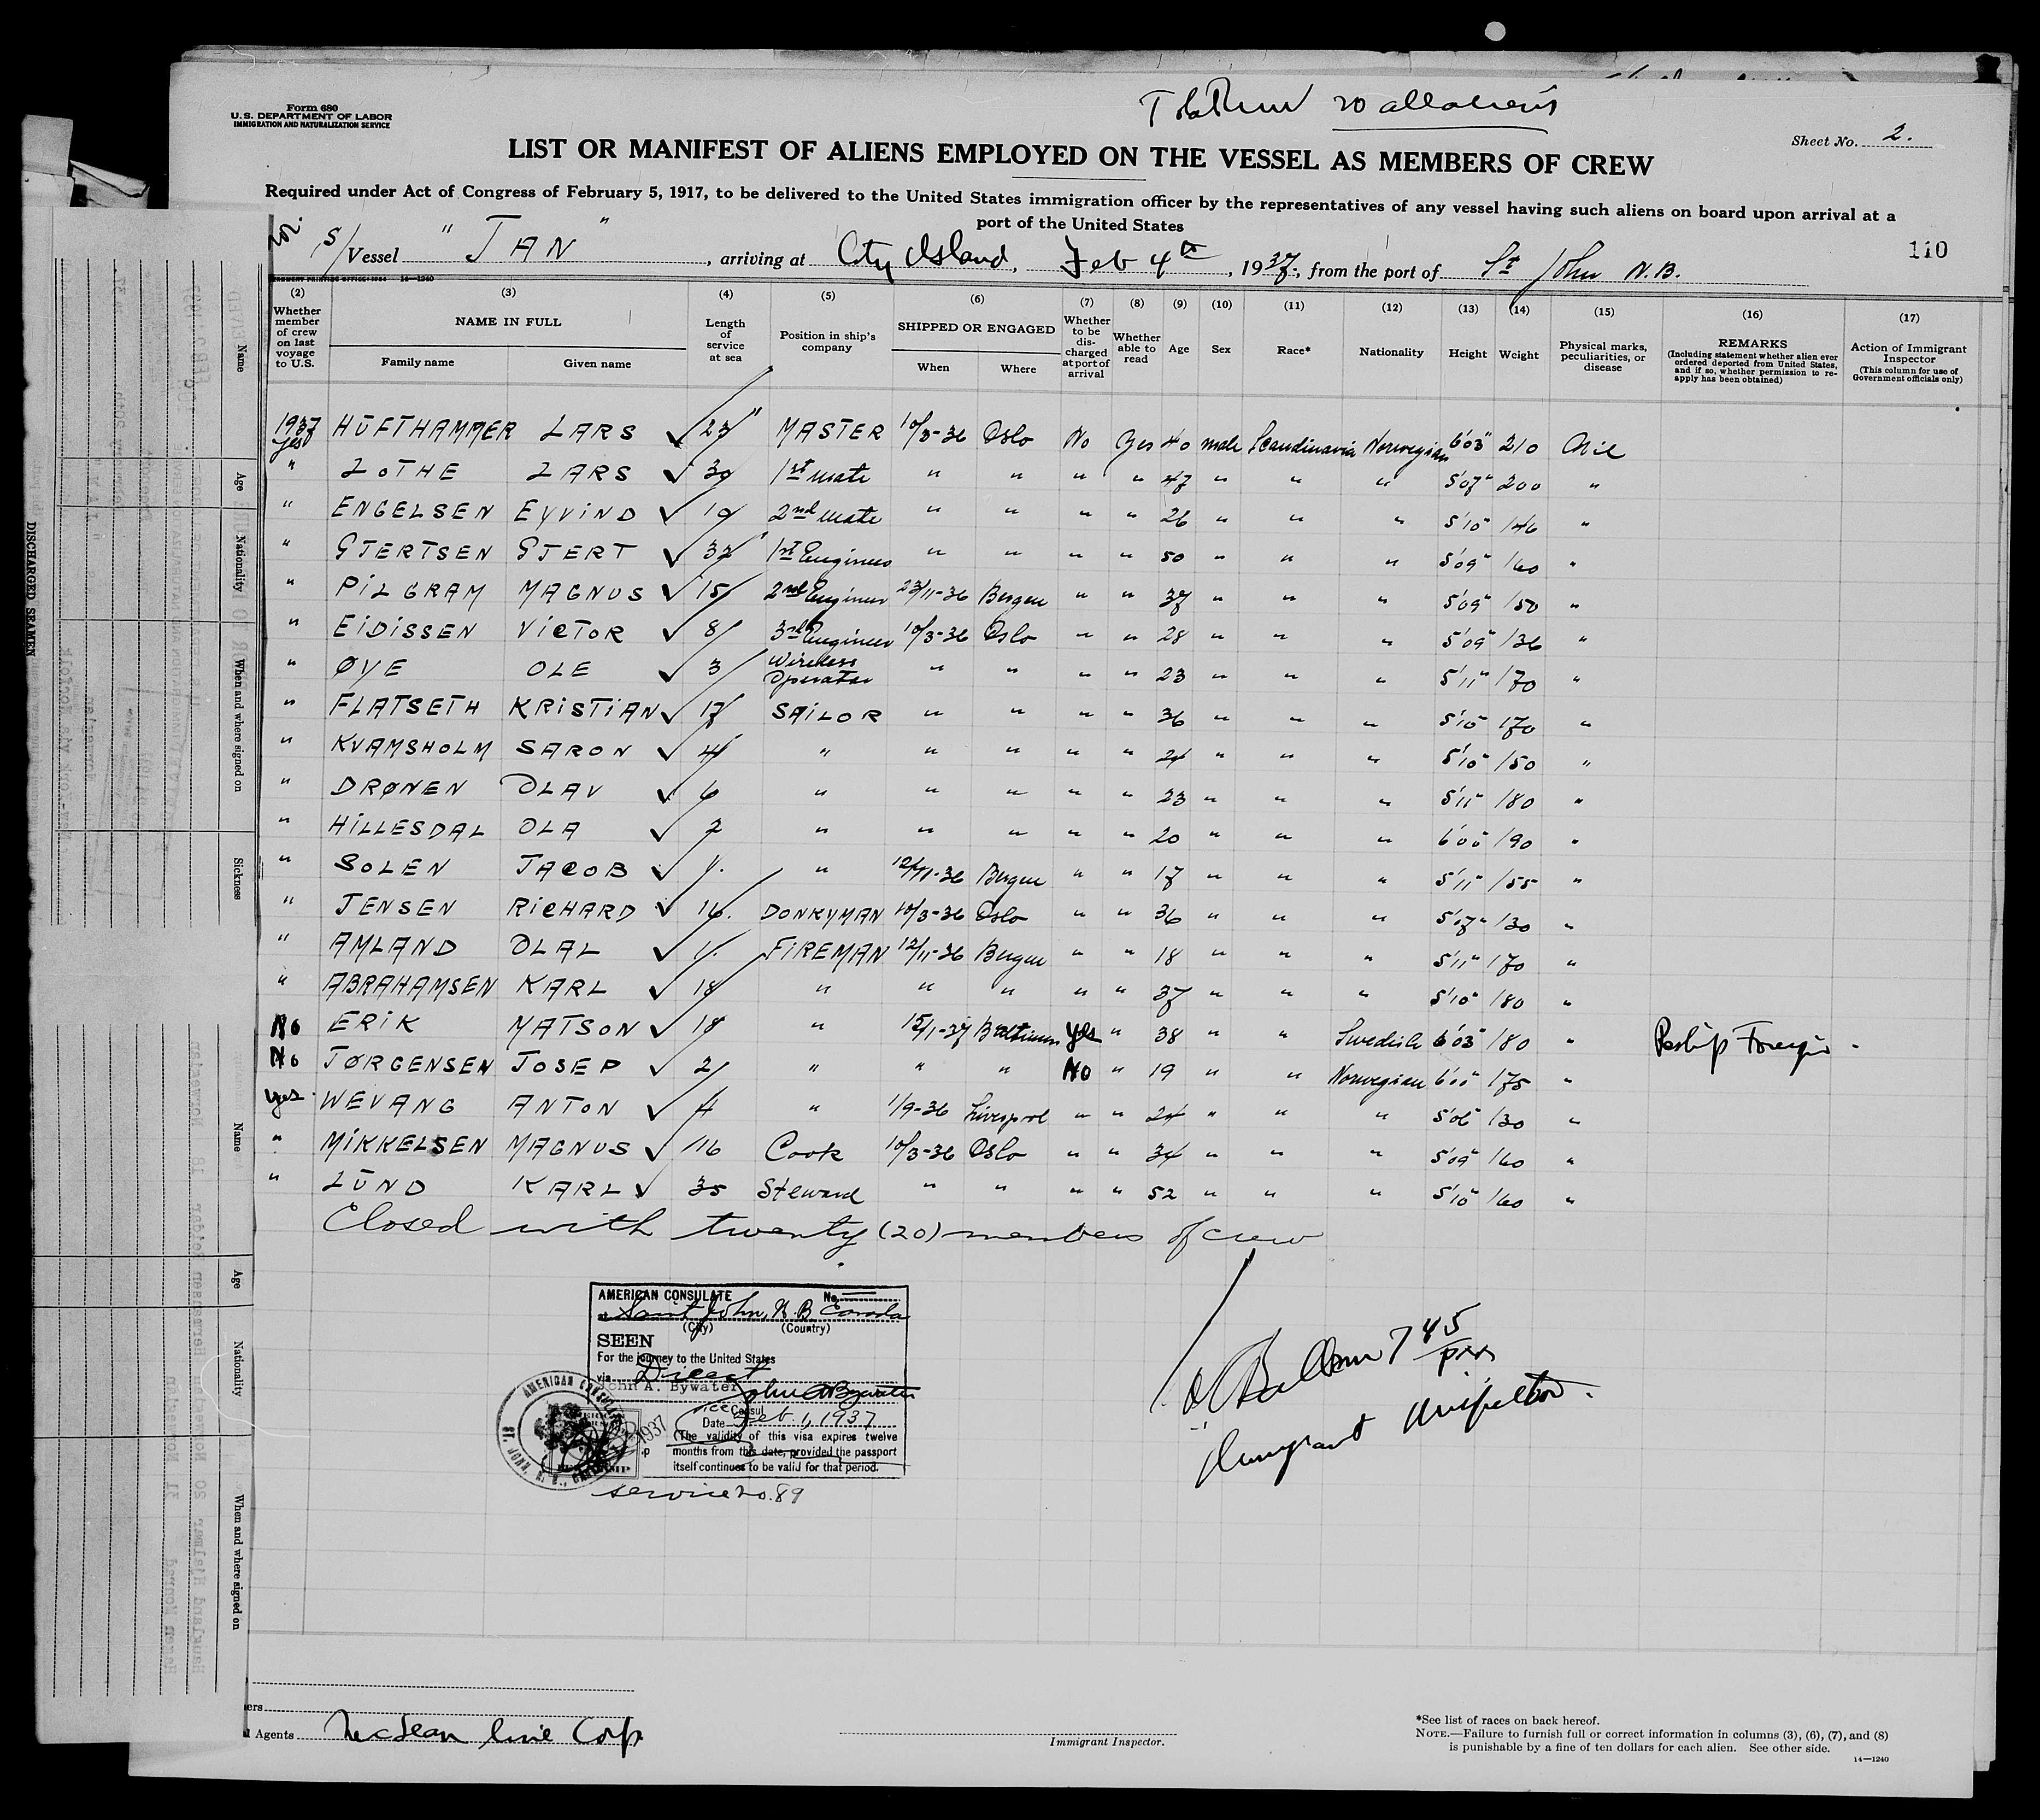 Form 680
U.S. DEPARTMENT OF LABOR
IMMIGRATION AND NATURALIZATION SERVICE
20 all aliens
Sheet No. 2.
LIST OR MANIFEST OF ALIENS EMPLOYED ON THE VESSEL AS MEMBERS OF CREW
Required under Act of Congress of February 5, 1917, to be delivered to the United States immigration officer by the representatives of any vessel having such aliens on board upon arrival at a
port of the United States
110
S/ Vessel "JAN", arriving at City Island, Feb 4th, 1937, from the port of St John N.B.
(2) (3) (4) (5) (6) (7) (8) (9) (10) (11) (12) (13) (14) (15) (16) (17)
Whether member of crew on last voyage to U.S.
NAME IN FULL
Family name Given name
Length of service at sea
Position in ship's company
SHIPPED OR ENGAGED
When Where
Whether to be discharged at port of arrival
Whether able to read
Age
Sex
Race*
Nationality
Height
Weight
Physical marks, peculiarities, or disease
REMARKS
(Including statement whether alien ever ordered deported from United States, and if so, whether permission to re-apply has been obtained)
Action of Immigrant Inspector
(This column for use of Government officials only)
1937
yes HUFTHAMMER LARS ✓ 23 MASTER 10/3-36 Oslo No Yes 40 male Scandinavia Norwegian 6'03" 210 Nil
" LOTHE LARS ✓ 30 1st mate " " " " 47 " " " 5'07" 200 "
" ENGELSEN EYVIND ✓ 10 2nd mate " " " " 26 " " " 5'10" 146 "
" GJERTSEN GJERT ✓ 32 1st Engineer " " " " 50 " " " 5'09" 160 "
" PILGRAM MAGNUS ✓ 15 2nd Engineer 23/11-36 Bergen " " 37 " " " 5'09" 150 "
" EIDISSEN VICTOR ✓ 8 3rd Engineer 10/3-36 Oslo " " 28 " " " 5'09" 136 "
" ØYE OLE ✓ 3 Wireless Operator " " " " 23 " " " 5'11" 170 "
" FLATSETH KRISTIAN ✓ 17 SAILOR " " " " 36 " " " 5'10" 170 "
" KVAMSHOLM SARON ✓ 4 " " " " " 24 " " " 5'10" 150 "
" DRØNEN OLAV ✓ 6 " " " " " 23 " " " 5'11" 180 "
" HILLESDAL OLA ✓ 2 " " " " " 20 " " " 6'00" 190 "
" SOLEN JACOB ✓ " 12/11-36 Bergen " " 17 " " " 5'11" 155 "
" JENSEN RICHARD ✓ 16 DONKYMAN 10/3-36 Oslo " " 36 " " " 5'07" 130 "
" AMLAND OLAL ✓ FIREMAN 12/11-36 Bergen " " 18 " " " 5'11" 170 "
" ABRAHAMSEN KARL ✓ 18 " " " " " 37 " " " 5'10" 180 "
No ERIK MATSON ✓ 18 " 15/1-37 Baltimore Yes " 38 " " Swedish 6'03" 180 "
No JØRGENSEN JOSEP ✓ 2 " " " No " 19 " " Norwegian 6'00" 175 "
yes WEVANG ANTON ✓ 4 " 1/9-36 Liverpool " " 24 " " " 5'06" 130 "
" MIKKELSEN MAGNUS ✓ 16 Cook 10/3-36 Oslo " " 34 " " " 5'09" 160 "
" LUND KARL ✓ 35 Steward " " " " 52 " " " 5'10" 160 "
Closed with twenty (20) members of crew
AMERICAN CONSULATE No.
at Saint John, N.B. Canada
(City) (Country)
SEEN
For the journey to the United States
via Direct
John A. Bywater John A Bywater
Vice Consul
Date Feb 1, 1937
(The validity of this visa expires twelve
months from this date, provided the passport
itself continues to be valid for that period.
AMERICAN CONSULATE
ST. JOHN, N. B., CANADA
service no. 89
7 45 pm
Immigrant Inspector
Agents McLean Line Corp
Immigrant Inspector.
*See list of races on back hereof.
NOTE.—Failure to furnish full or correct information in columns (3), (6), (7), and (8)
is punishable by a fine of ten dollars for each alien. See other side.
14—1240
DISCHARGED SEAMEN
Name
Age
Nationality
When and where signed on
Sickness
Name
Age
Nationality
When and where signed on